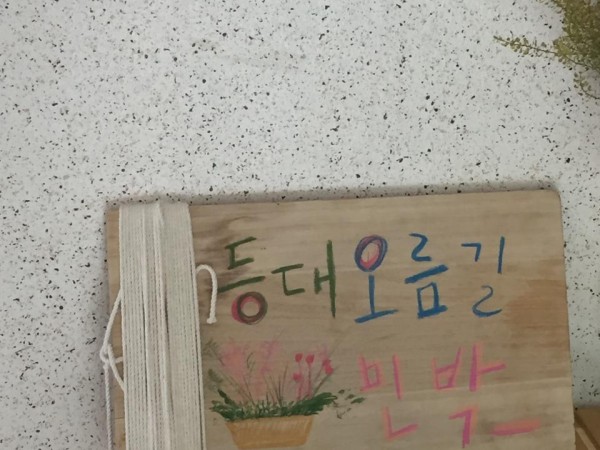 등대오름길
민박